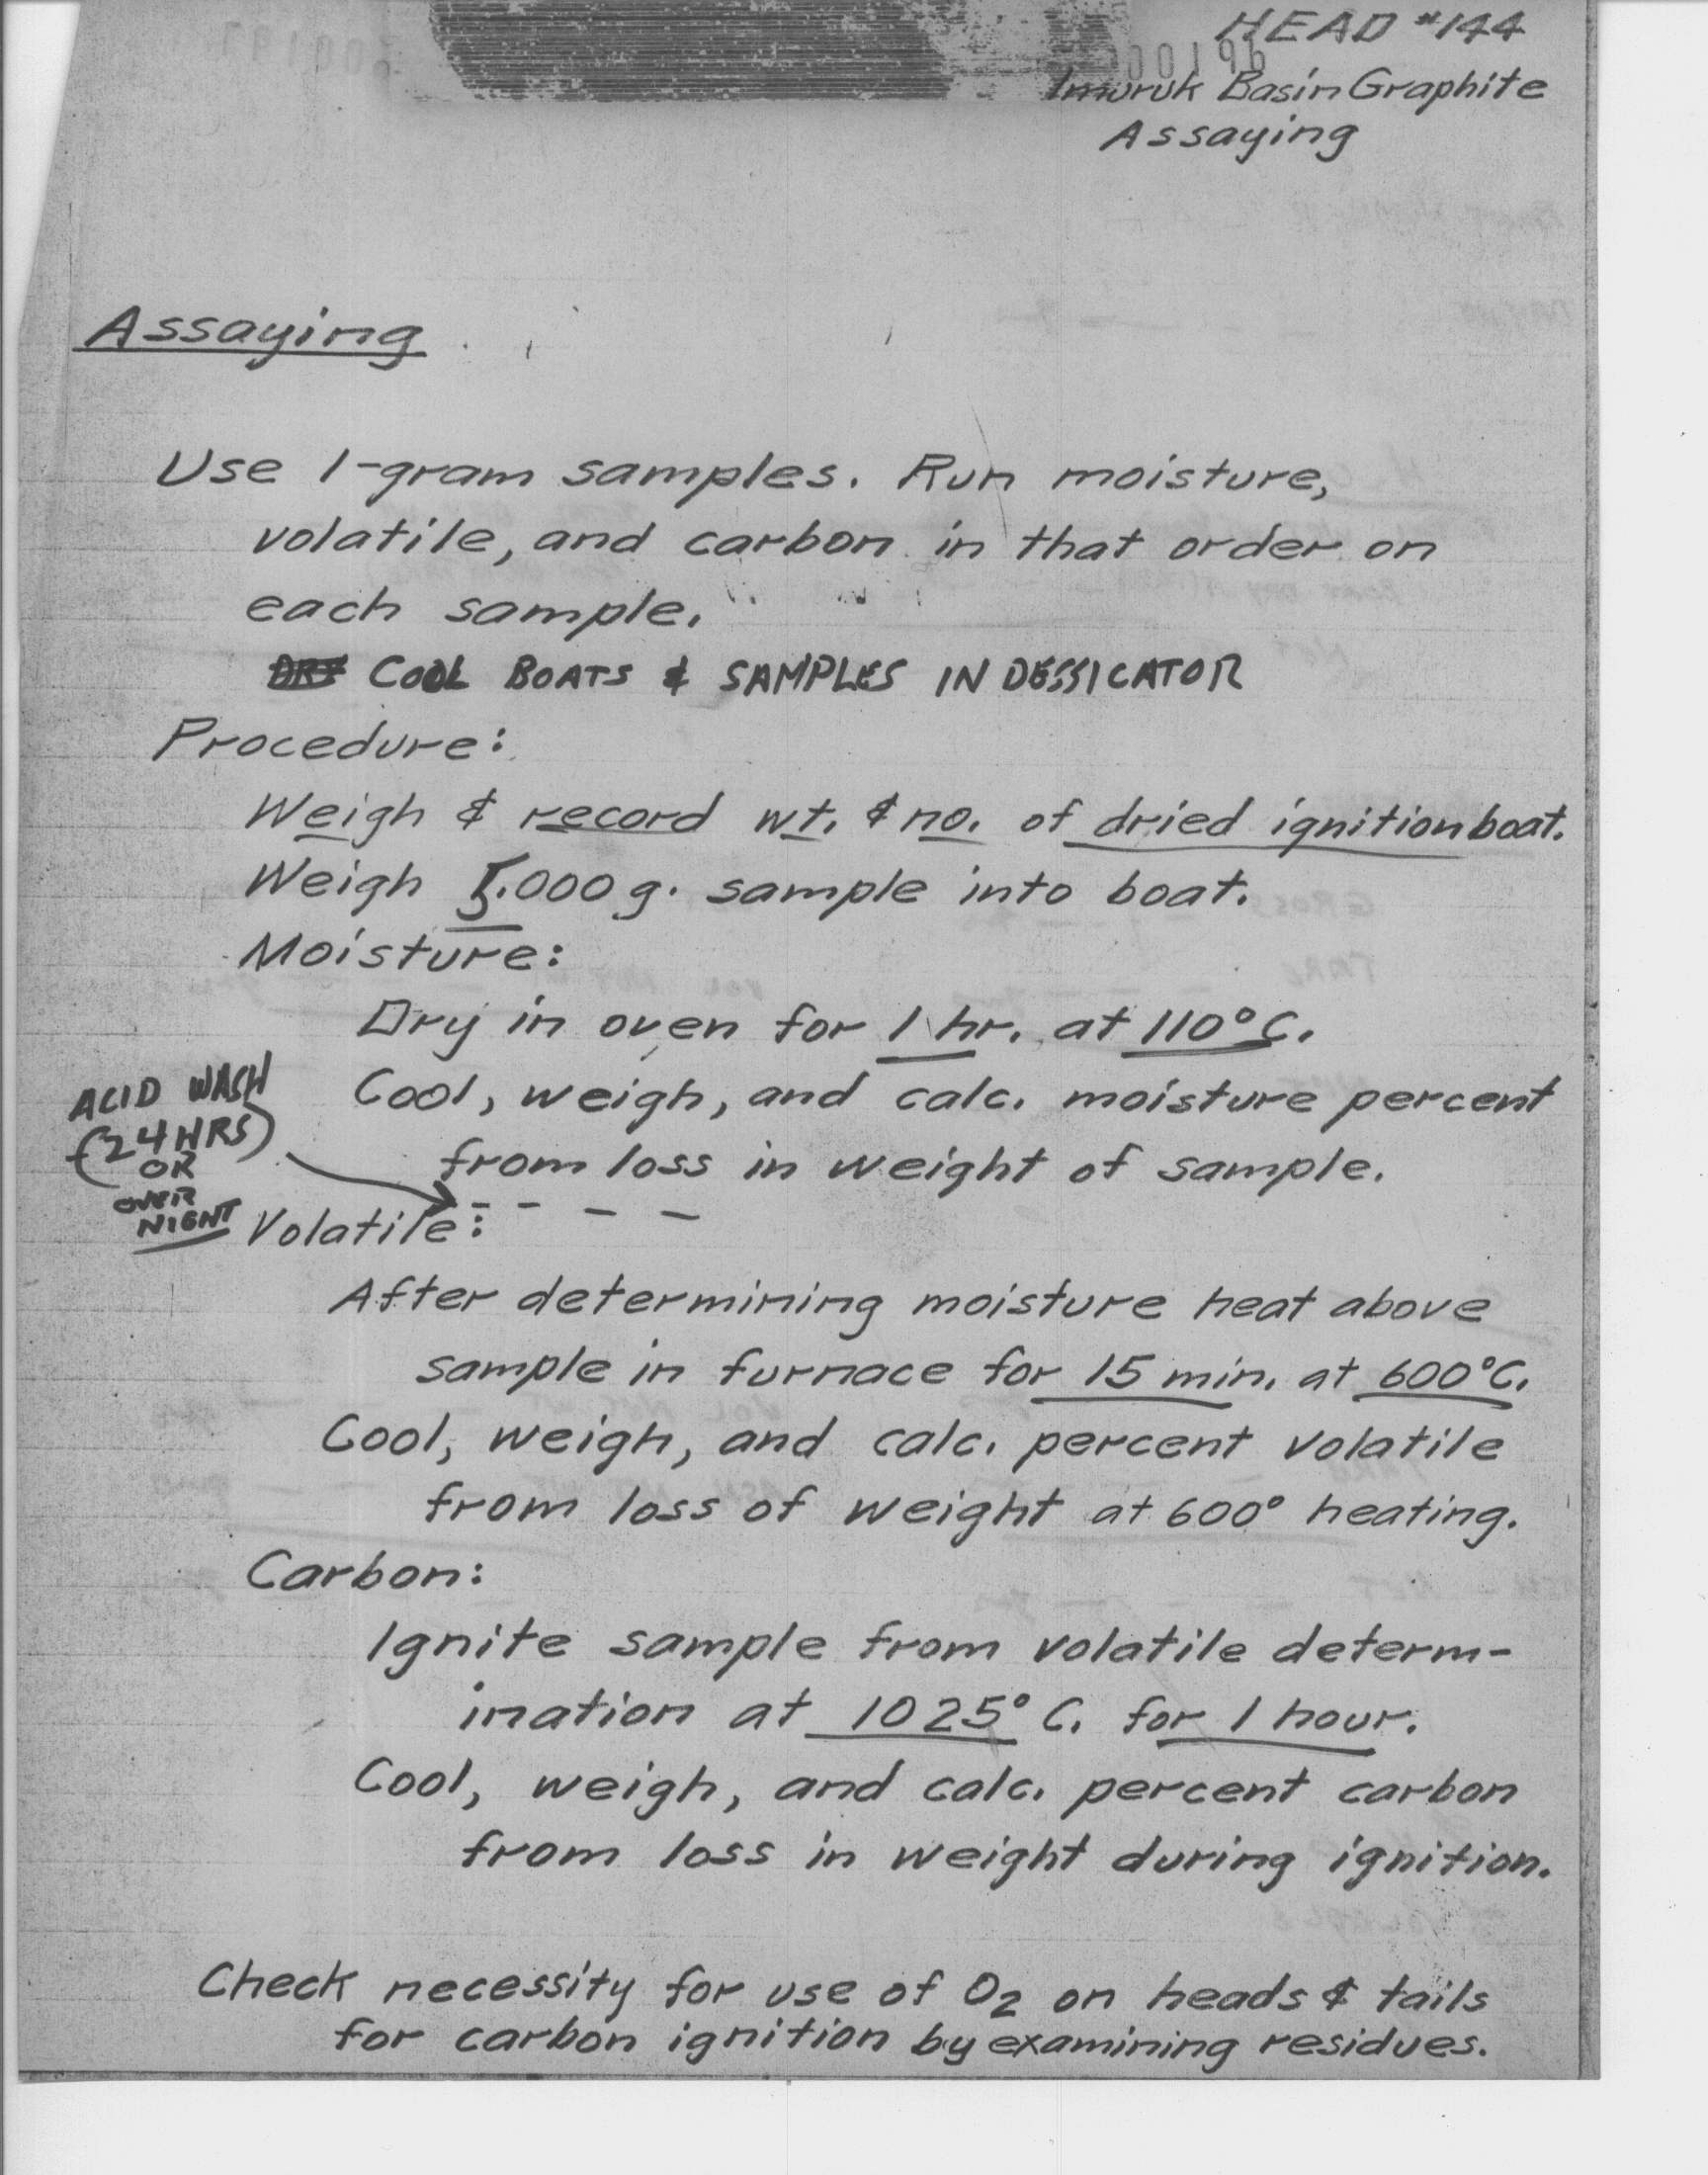 HEAD #144
000196
Imuruk Basin Graphite
Assaying
Assaying
Use 1-gram samples. Run moisture,
volatile, and carbon in that order on
each sample.
COOL BOATS & SAMPLES IN DESSICATOR
Procedure:
Weigh & record wt. & no. of dried ignition boat.
Weigh 5.000 g. sample into boat.
Moisture:
Dry in oven for 1 hr. at 110°C.
Cool, weigh, and calc. moisture percent
from loss in weight of sample.
ACID WASH
(24 HRS)
OR
OVER
NIGHT
Volatile:
After determining moisture heat above
sample in furnace for 15 min. at 600°C.
Cool, weigh, and calc. percent volatile
from loss of weight at 600° heating.
Carbon:
Ignite sample from volatile determ-
ination at 1025° C. for 1 hour.
Cool, weigh, and calc. percent carbon
from loss in weight during ignition.
Check necessity for use of O2 on heads & tails
for carbon ignition by examining residues.